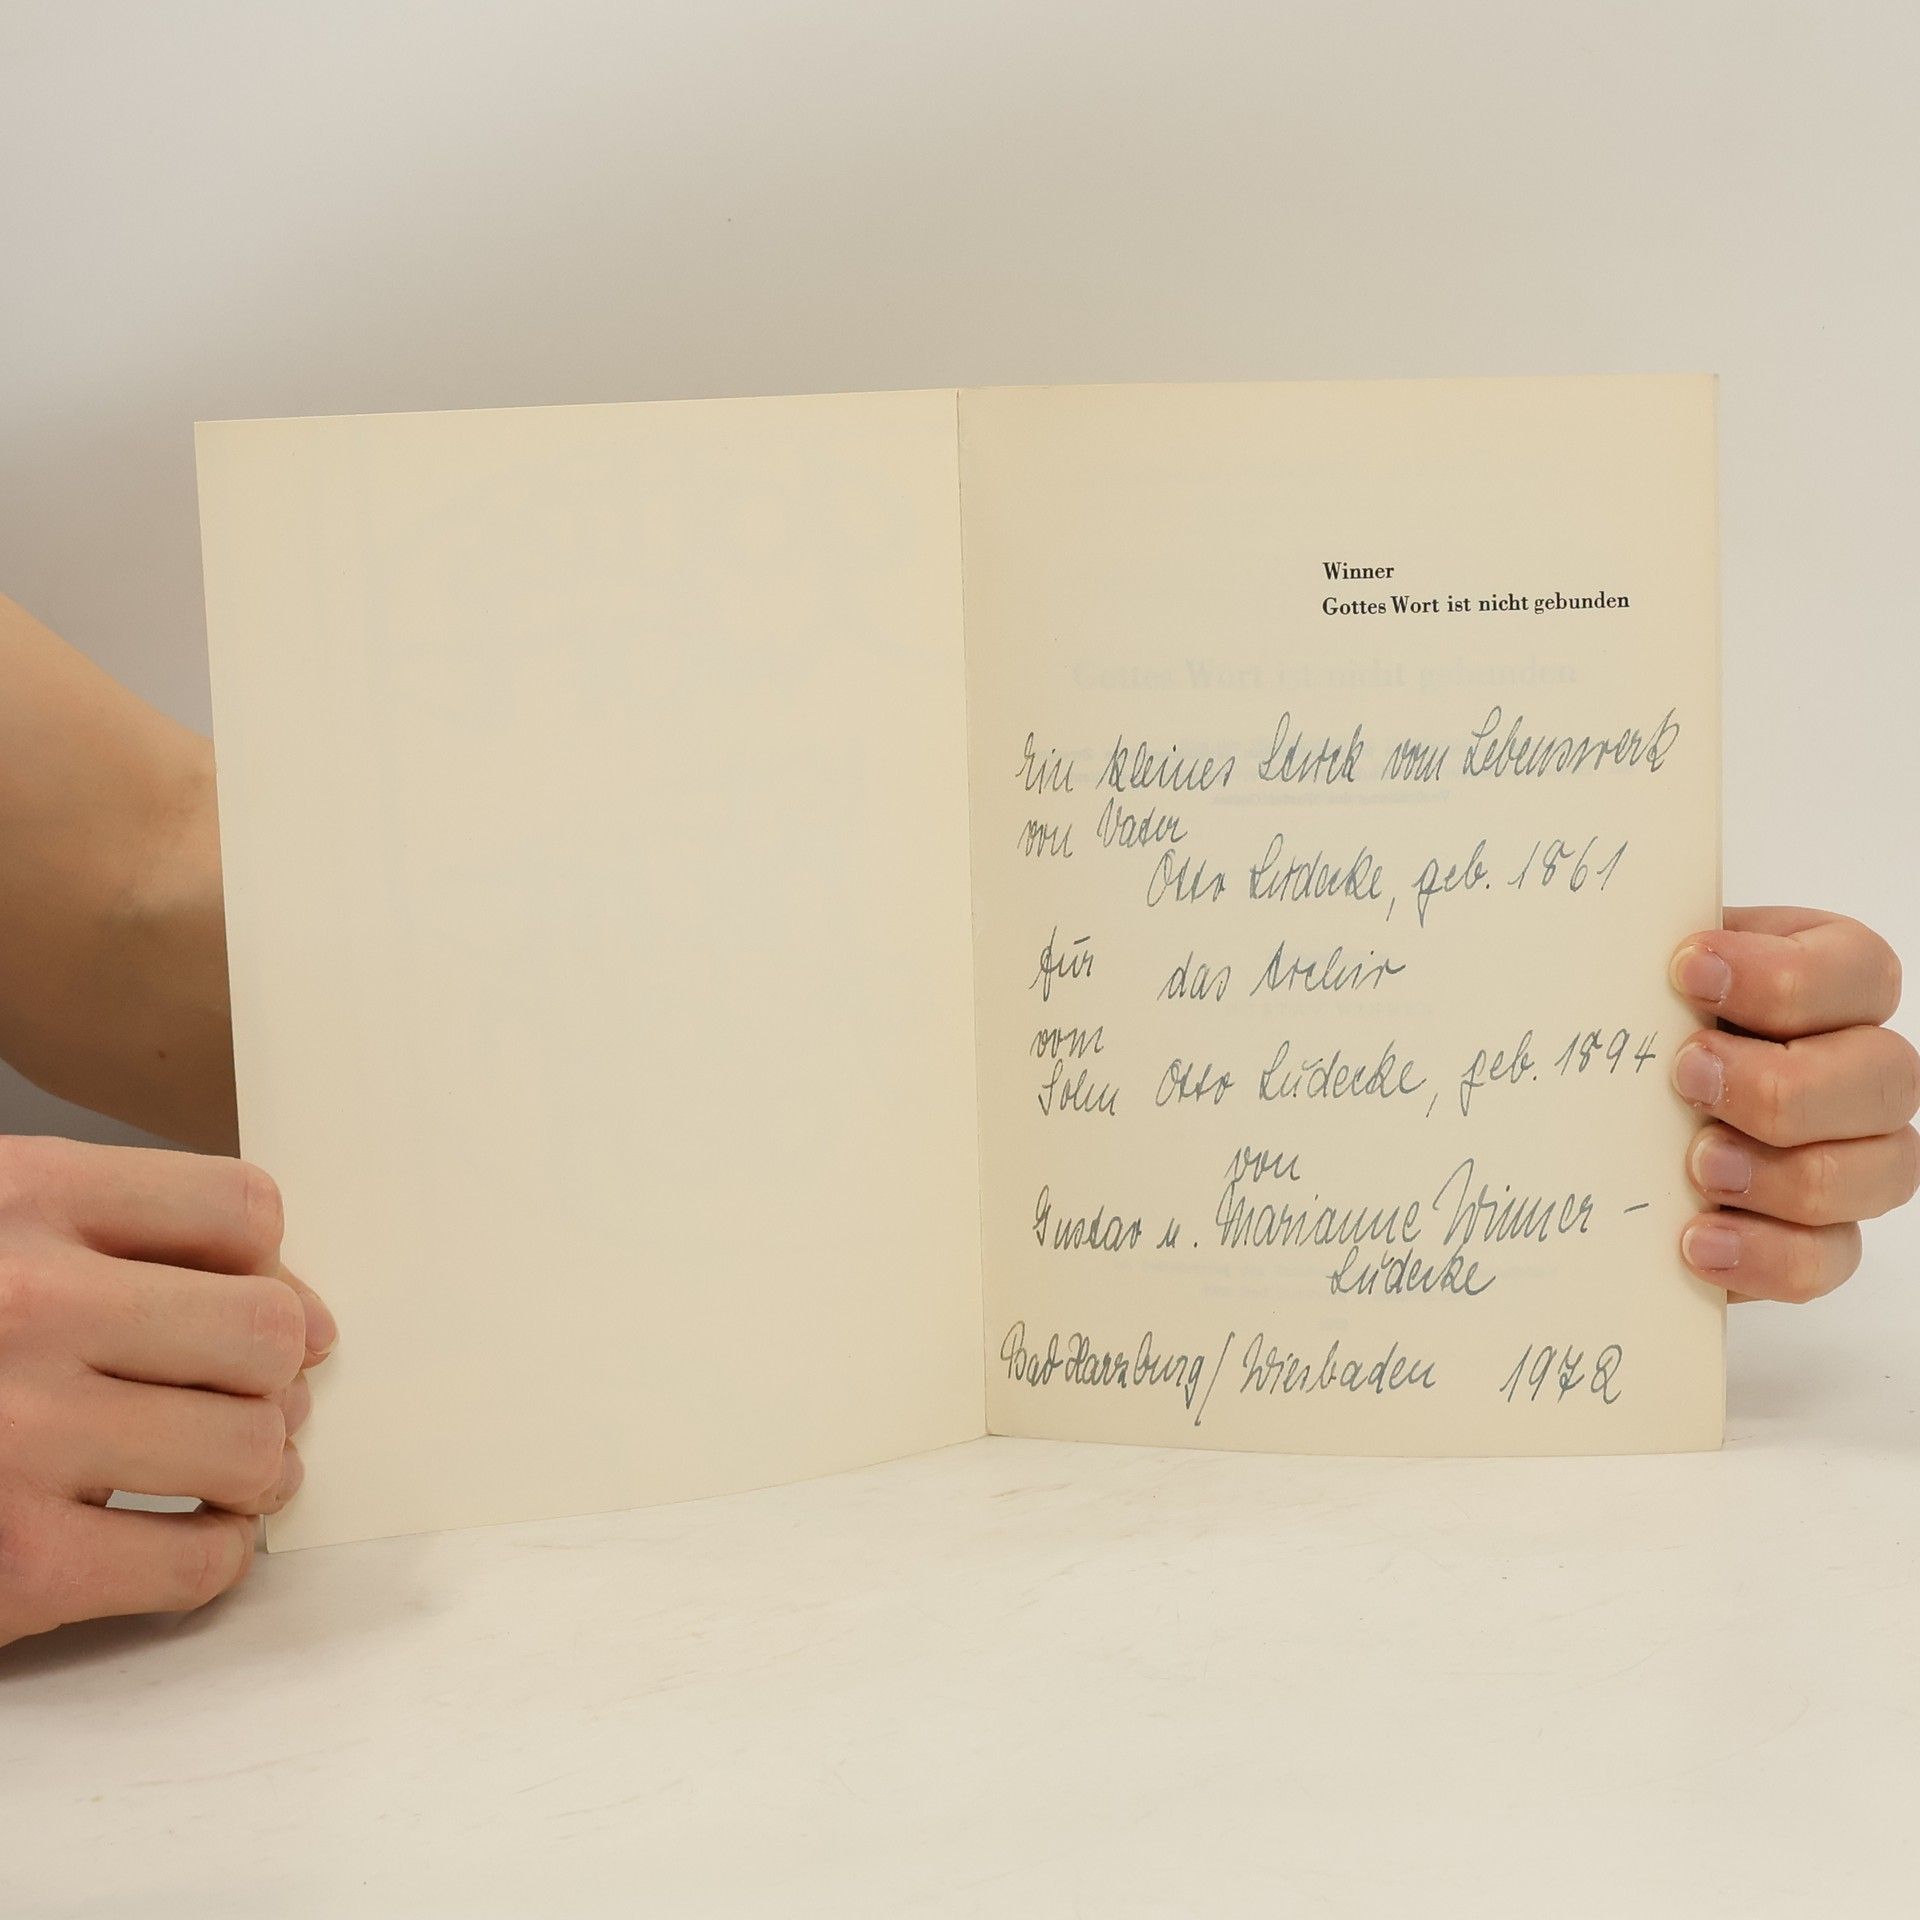 Winner
Gottes Wort ist nicht gebunden
Gottes Wort ist nicht gebunden
Ein kleines Stück vom Lebenswerk
von Vater
Otto Lüdecke, geb. 1861
für das Archiv
vom
Sohn Otto Lüdecke, geb. 1894
von
Gustav u. Marianne Winner –
Lüdecke
Bad Harzburg / Wiesbaden 1972